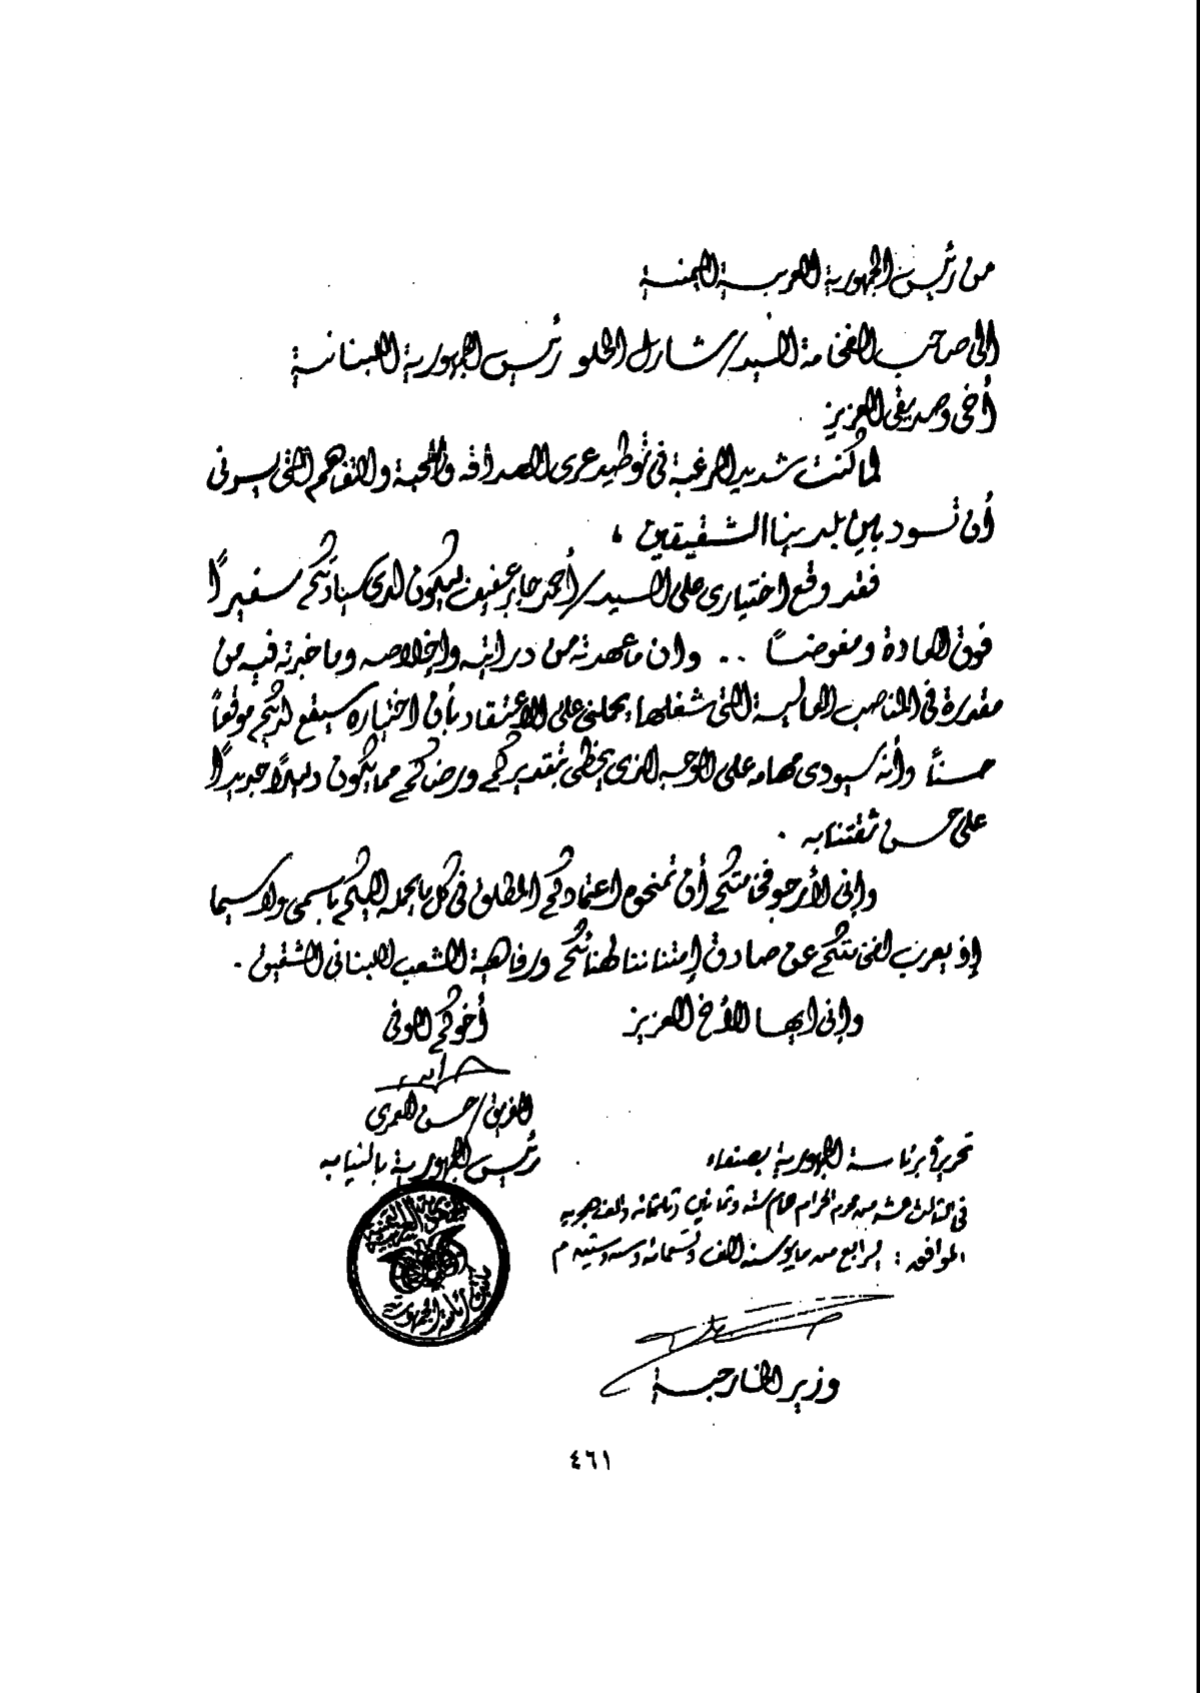 من رئيس الجمهورية العربية اليمنية
إلى صاحب الفخامة السيد/ شارل الحلو رئيس الجمهورية اللبنانية
أخى وصديقى العزيز
لما كنت شديد الرغبة فى توطيد عرى الصداقة والمحبة والتفاهم التى يسرنى
أن تسود بين بلدينا الشقيقين ،
فقد وقع اختيارى على السيد/ أحمد جابر عفيف ليكون لدى سيادتكم سفيراً
فوق العادة ومفوضاً .. وان ما عهدته من درايته وإخلاصه وما خبرته فيه من
مقدرة فى المناصب العالية التى شغلها، يحملنى على الاعتقاد بأن اختياره سيقع لديكم موقعاً
حسناً وأنه سيودى مهامه على الوجه الذى يحظى بتقديركم ورضاكم مما يكون دليلاً جديداً
على حسن ثقتنا به .
وإنى لأرجو فخامتكم أن تمنحوه اعتمادكم المطلق فى كل ما يحمله اليكم باسمى ولا سيما
إذ يعرب لفخامتكم عن صادق إمتناننا لهنائكم ورفاهية الشعب اللبنانى الشقيق .
وإنى ايها الأخ العزيز
أخوكم الوفى
الفريق/ حسن العمرى
رئيس الجمهورية بالنيابه
تحريرًا برئاسة الجمهورية بصنعاء
فى الثالث عشر من محرم الحرام عام سته وثمانين وثلثمائه والف هجريه
الموافق : لرابع من مايو سنه الف وتسعمائه وسته وستين م
وزير الخارجية
٤٦١